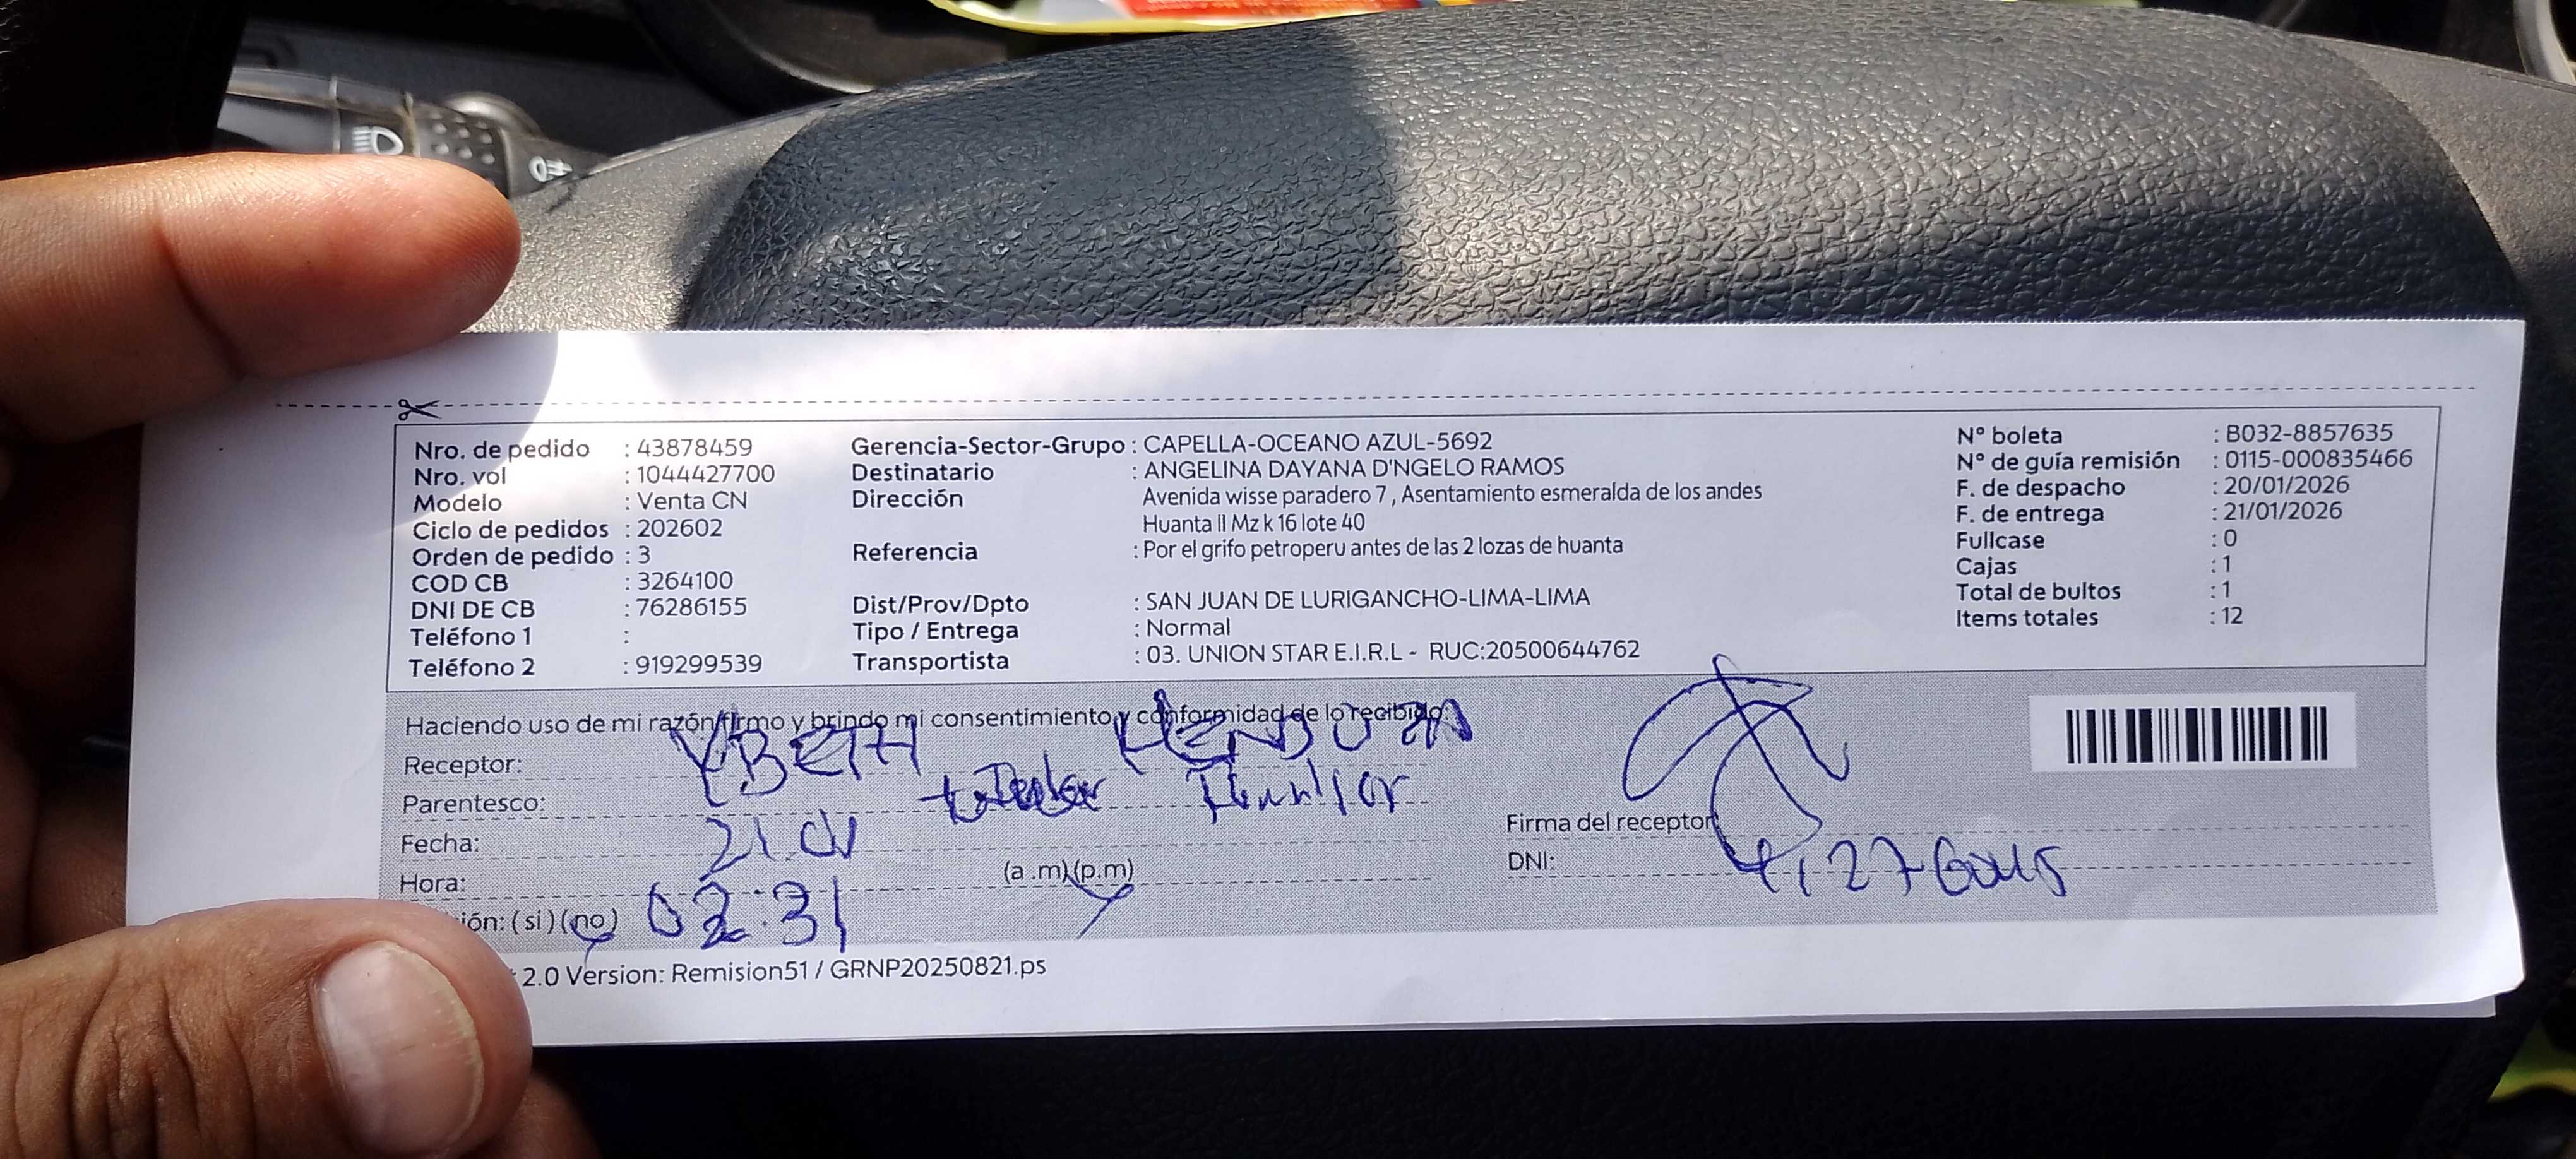 Nro. de pedido : 43878459
Nro. vol : 1044427700
Modelo : Venta CN
Ciclo de pedidos : 202602
Orden de pedido : 3
COD CB : 3264100
DNI DE CB : 76286155
Teléfono 1 :
Teléfono 2 : 919299539
Gerencia-Sector-Grupo : CAPELLA-OCEANO AZUL-5692
Destinatario : ANGELINA DAYANA D'NGELO RAMOS
Dirección Avenida wisse paradero 7 , Asentamiento esmeralda de los andes
Huanta II Mz k 16 lote 40
Referencia : Por el grifo petroperu antes de las 2 lozas de huanta
Dist/Prov/Dpto : SAN JUAN DE LURIGANCHO-LIMA-LIMA
Tipo / Entrega : Normal
Transportista : 03. UNION STAR E.I.R.L - RUC:20500644762
N° boleta : B032-8857635
N° de guía remisión : 0115-000835466
F. de despacho : 20/01/2026
F. de entrega : 21/01/2026
Fullcase : 0
Cajas : 1
Total de bultos : 1
Items totales : 12
Haciendo uso de mi razón firmo y brindo mi consentimiento y conformidad de lo recibido:
Receptor: YBETH
Parentesco:
Fecha: 21
Hora: 02:31 (a .m)(p.m)
ión: ( si ) (no)
Firma del receptor
DNI:
2.0 Version: Remision51 / GRNP20250821.ps